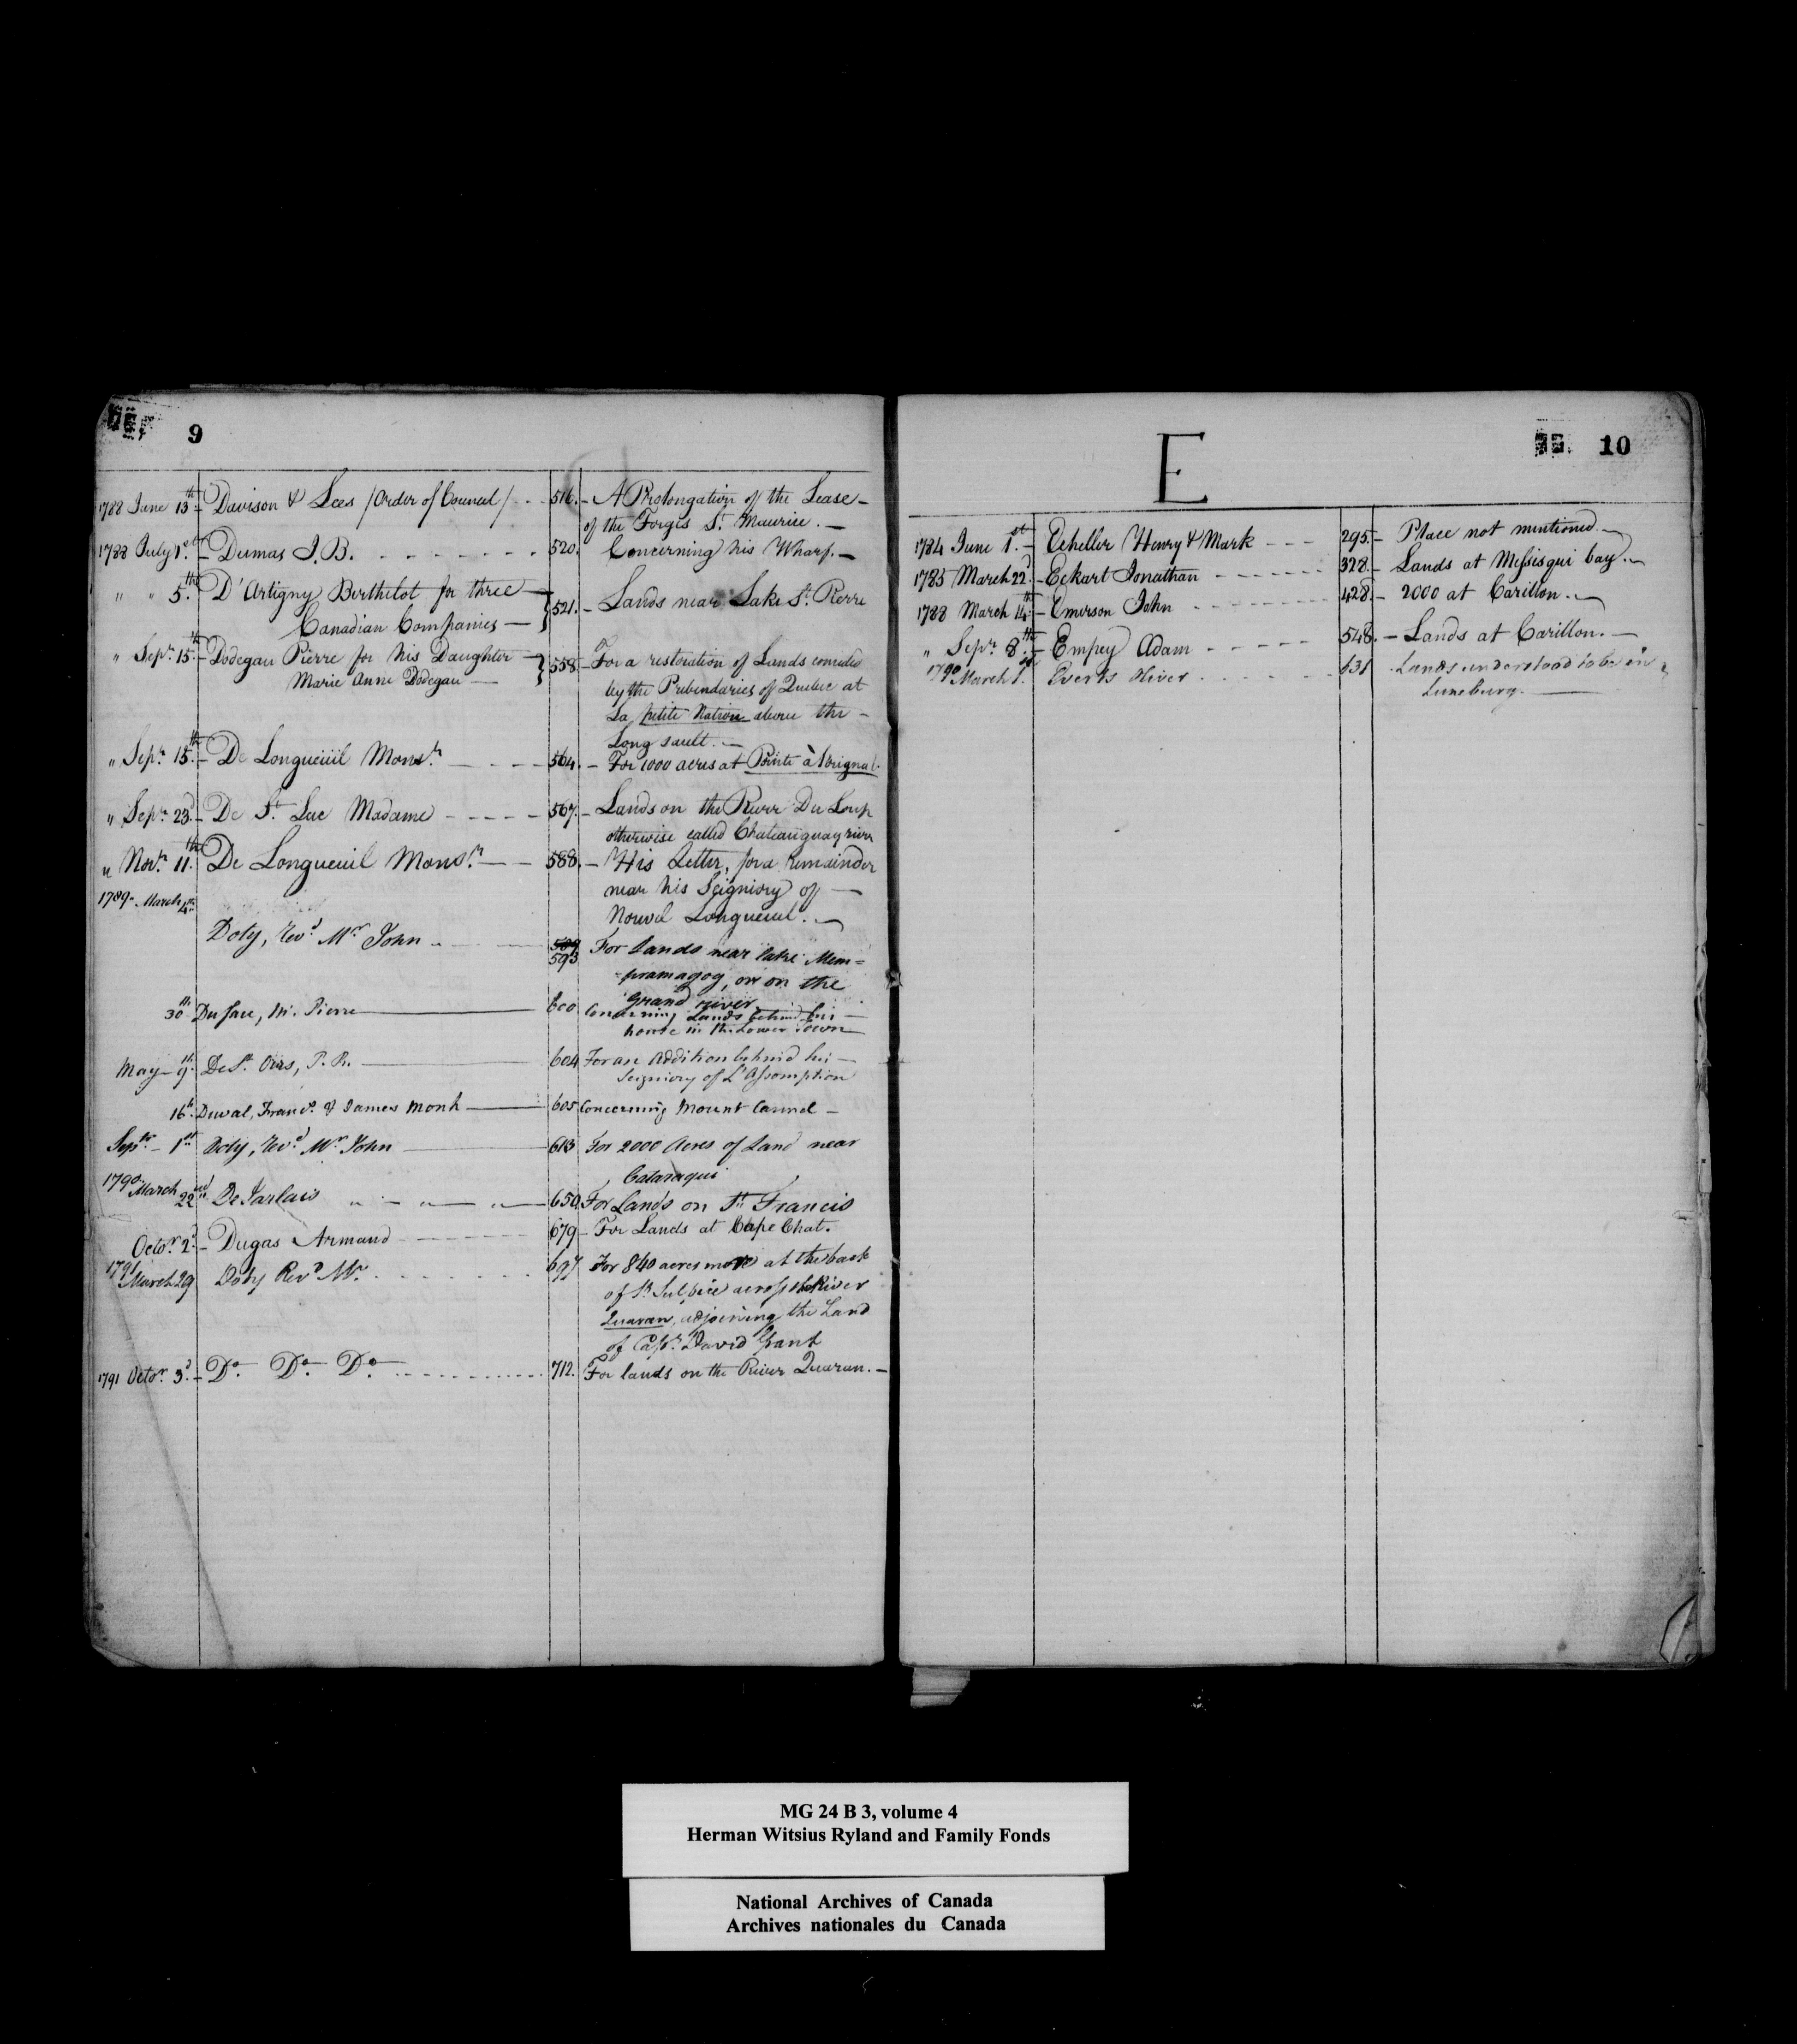 9
1788 June 13th - Davison & Lees /Order of Council/ - - 516. - A Prolongation of the Lease -
of the Forges St. Maurice. -
1788 July 1st - Dumas J.B. - - - - - - - - 520. Concerning his Wharf. -
" " 5th. D'Artigny Berthelot for three -
Canadian Companies - } 521. - Lands near Lake St. Pierre
" Sepr. 15th - Dodegau Pierre for his Daughter -
Marie Anne Dodegau - } 558 - For a restoration of Lands conceded
by the Prebendaries of Quebec at
La petite Nation above the -
Long sault. -
" Sepr. 15th - De Longueüil Monsr. - - - - 564. - For 1000 acres at Pointe à l'orignal.
" Sepr. 23d. - De St. Luc Madame - - - - - 567. - Lands on the River Du Loup
otherwise called Chateauguay river
" Novr. 11th. De Longueuil Monsr. - - - 588. - His Letter, for a Remainder
near his Seigniory of -
Nouvel Longueuil. -
1789 - March 4th
Doty, Revd. Mr. John - - 589
593 For Lands near lake Mem=
=phramagog, or on the
Grand river.
30th Dufau, Mr. Pierre 600 Concerning Lands behind his -
house in the Lower Town
May - 9th. De St. Ours, P. R. 604 For an Addition behind his -
Seigniory of L'Assomption
16th. Duval, Frans. & James Monk 605 Concerning Mount Carmel -
Sepr. - 1st Doty, Revd. Mr. John 613 For 2000 Acres of Land near
Cataraqui
1790 March 22nd De Jarlais " - " - " 650. For Lands on St. Francis
Octor. 2d. - Dugas Armand - - - - - - 679 - For Lands at Cape Chat.
1791 March 29 Doty Revd. Mr. . . . . . . . 697 For 840 acres more at the back
of St. Sulpice across the River
Quaran, adjoining the Land
of Capt. David Grant
1791 Octor. 3d. - Do. Do. Do. . . . . . . . 712. For lands on the River Quaran. -
E
10
1784 June 1st. - Echeller Henry & Mark - - - 295. - Place not mentioned -
1785 March 22d - Eckart Jonathan - - - - - - 328. - Lands at Missisqui bay. -
1788 March 14th. - Emerson John - - - - - - - 428. - 2000 at Carillon. -
" Sepr. 8th. - Empey Adam - - - - - 548. - Lands at Carillon. -
1790 March 1st. Everts Oliver . . . . . . 631 . Lands understood to be in
Luneburg.
MG 24 B 3, volume 4
Herman Witsius Ryland and Family Fonds
National Archives of Canada
Archives nationales du Canada